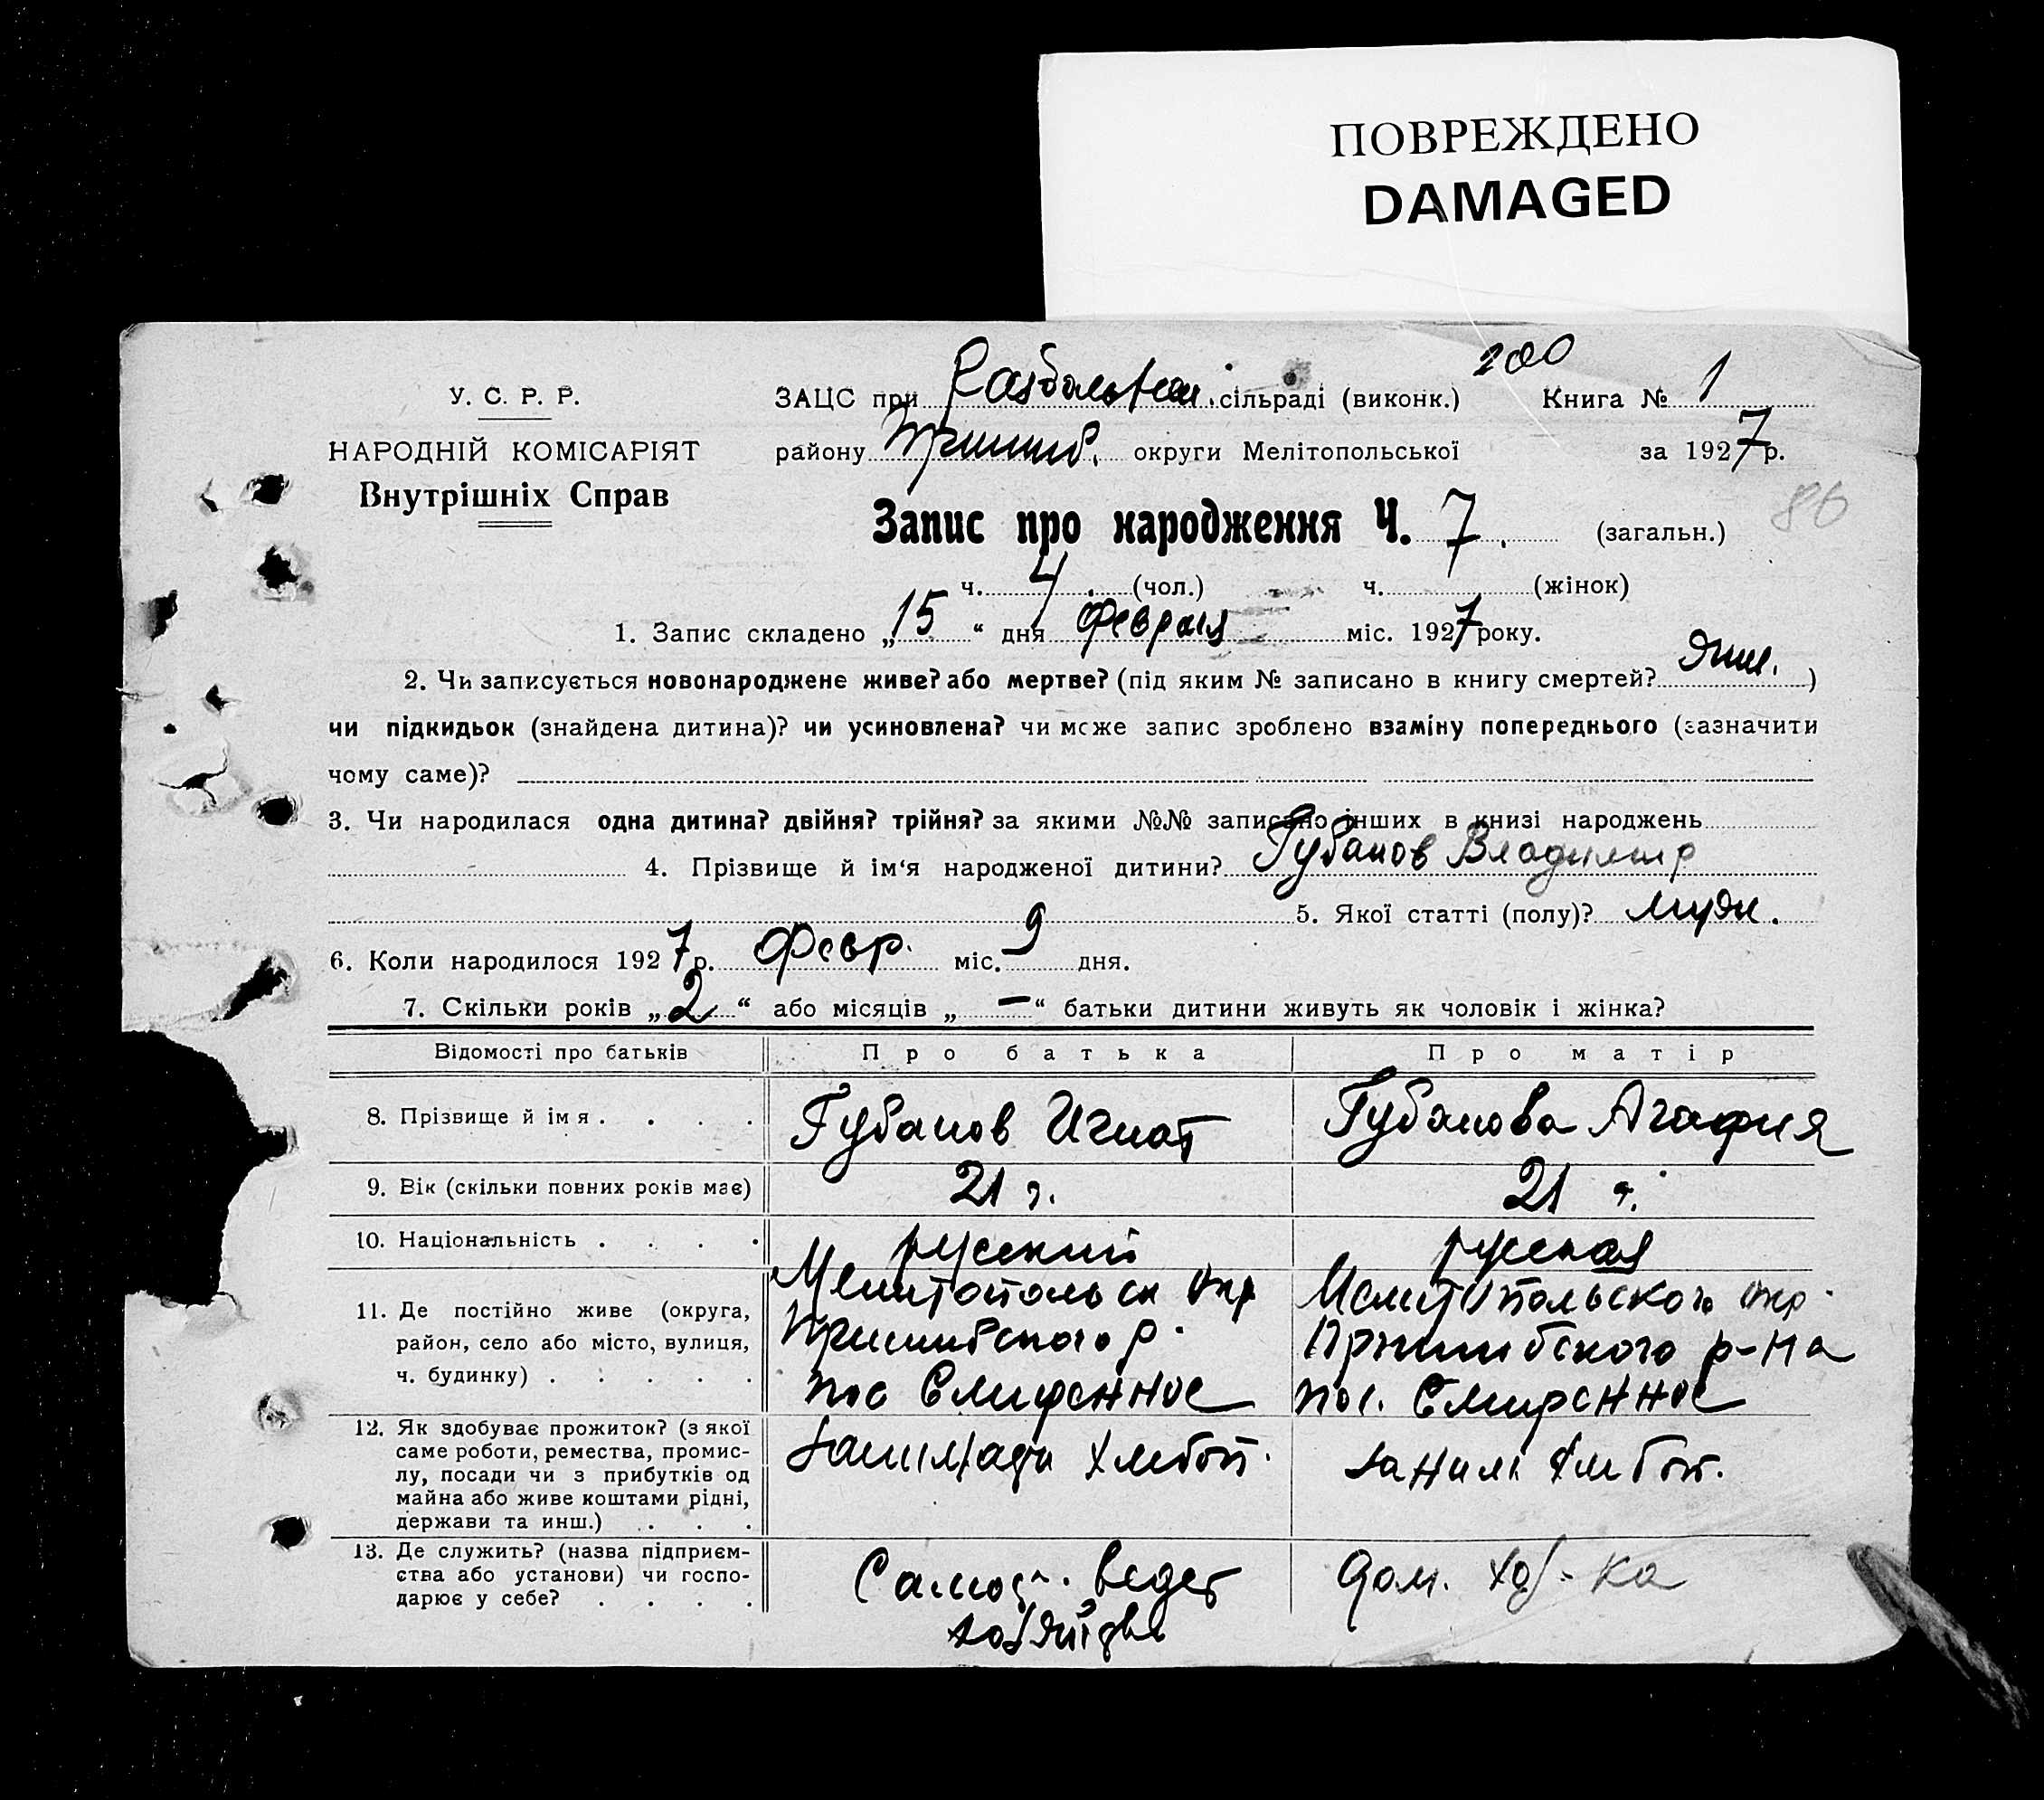 ПОВРЕЖДЕНО
DAMAGED
200
У. С. Р. Р. ЗАЦС при сільраді (виконк.) Книга № 1
НАРОДНІЙ КОМІСАРІЯТ району Пришиб. округи Мелітопольської за 1927 р.
Внутрішніх Справ
86
Запис про народження Ч. 7. (загальн.)
ч. 4 (чол.) ч. (жінок)
1. Запис складено „15“ дня февраля міс. 1927 року.
2. Чи записується новонароджене живе? або мертве? (під яким № записано в книгу смертей? жив.)
чи підкидьок (знайдена дитина)? чи усиновлена? чи може запис зроблено взаміну попереднього (зазначити
чому саме)?
3. Чи народилася одна дитина? двійня? трійня? за якими №№ записано інших в книзі народжень
4. Прізвище й ім‘я народженої дитини? Губанов Владимир
5. Якої статті (полу)? муж.
6. Коли народилося 1927 р. Февр. міс. 9 дня.
7. Скільки років „2“ або місяців „—“ батьки дитини живуть як чоловік і жінка?
Відомості про батьків Про батька Про матір
8. Прізвище й ім я . . . . Губанов Игнат Губанова Агафия
9. Вік (скільки повних років має) 21 г. 21 г.
10. Національність . . . . русский русская
11. Де постійно живе (округа, Мелитопольск окр Мелитопольского окр.
район, село або місто, вулиця, Пришибского р. Пришибского р-на
ч. будинку) . . . . . пос Смиренное пос. Смиренное
12. Як здобуває прожиток? (з якої хлебоп. хлебоп.
саме роботи, ремества, промис-
лу, посади чи з прибутків од
майна або живе коштами рідні,
держави та инш.) . . .
13. Де служить? (назва підприєм- Самост. ведет дом. хоз-ка
ства або установи) чи госпо- хозяйство
дарює у себе? . . . .